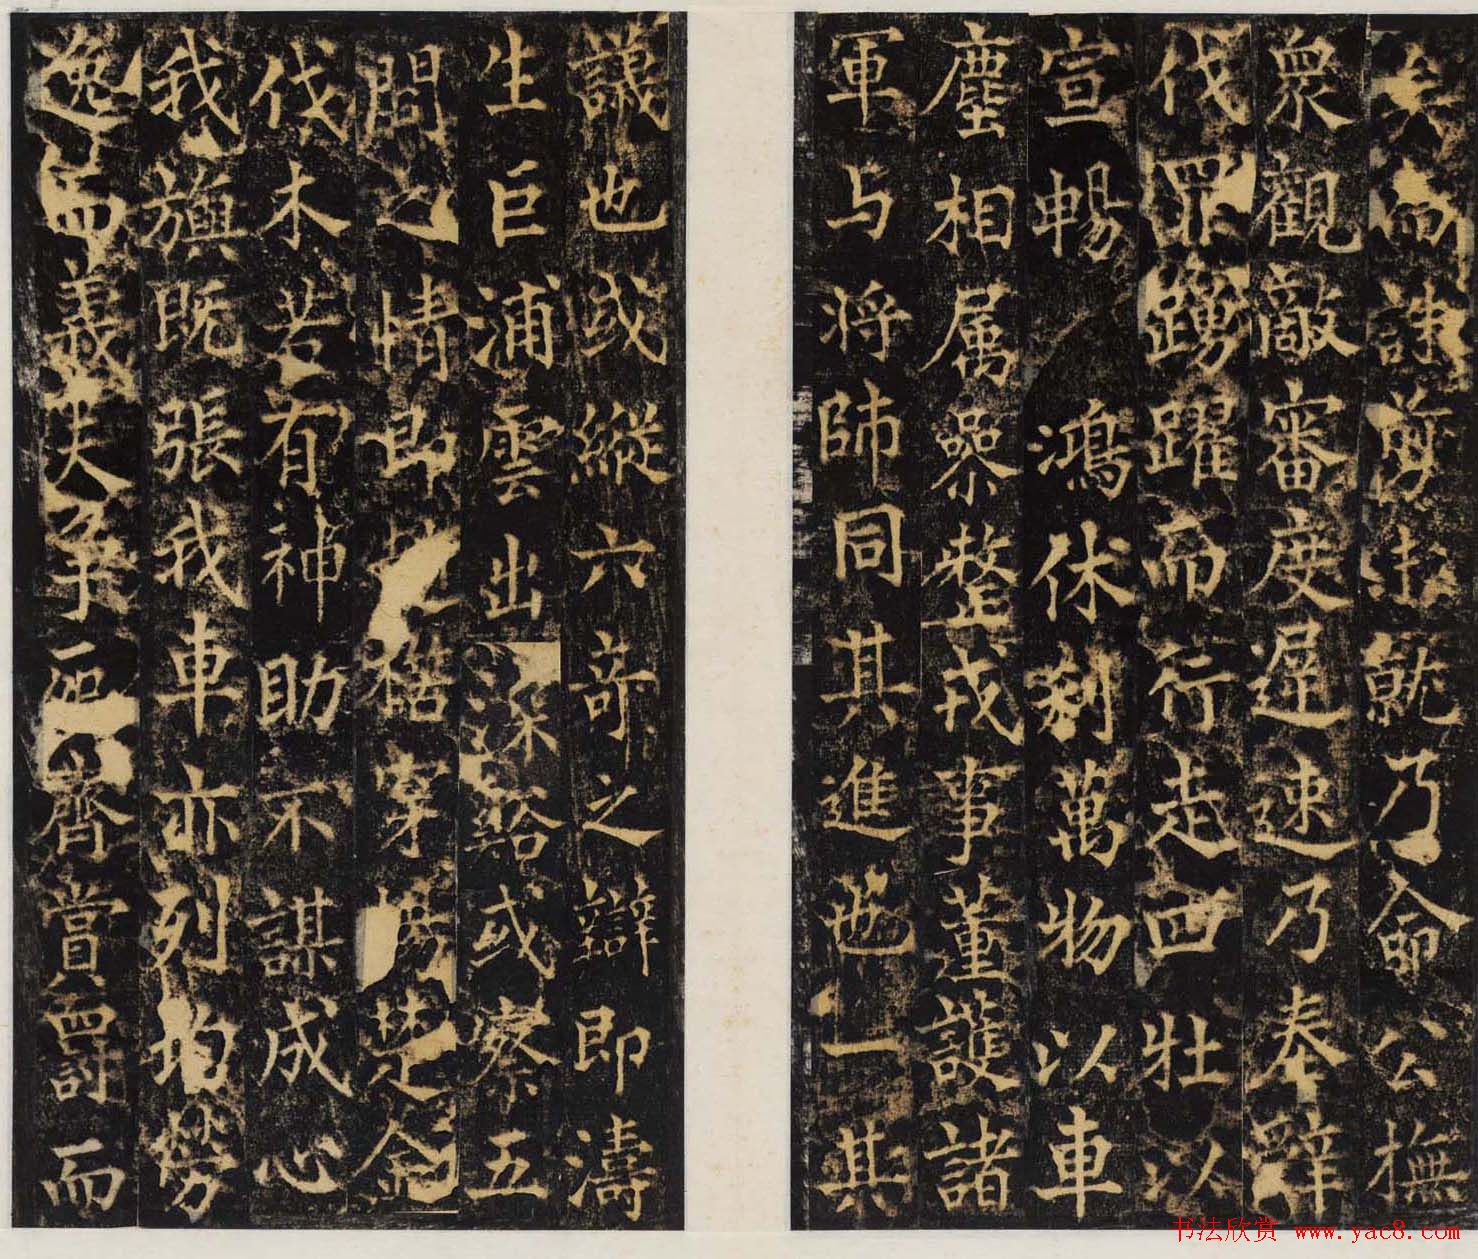 矣而諫剪未就乃命公撫
衆觀敵審度遲速乃奉辞
伐罪踴躍而行走四牡以
宣暢鴻休剗萬物以車
塵相属桑整戎事董護諸
軍与将帥同其進也一其
議也或縱六奇之辯即濤
生巨浦雲出深谿或察五
間之情即楛穿楊楚金
伐木若有神助不謀成心
我旗既張我車亦列均勞
逸而義夫争血齊賞罰而
书法欣赏 www.yac8.com